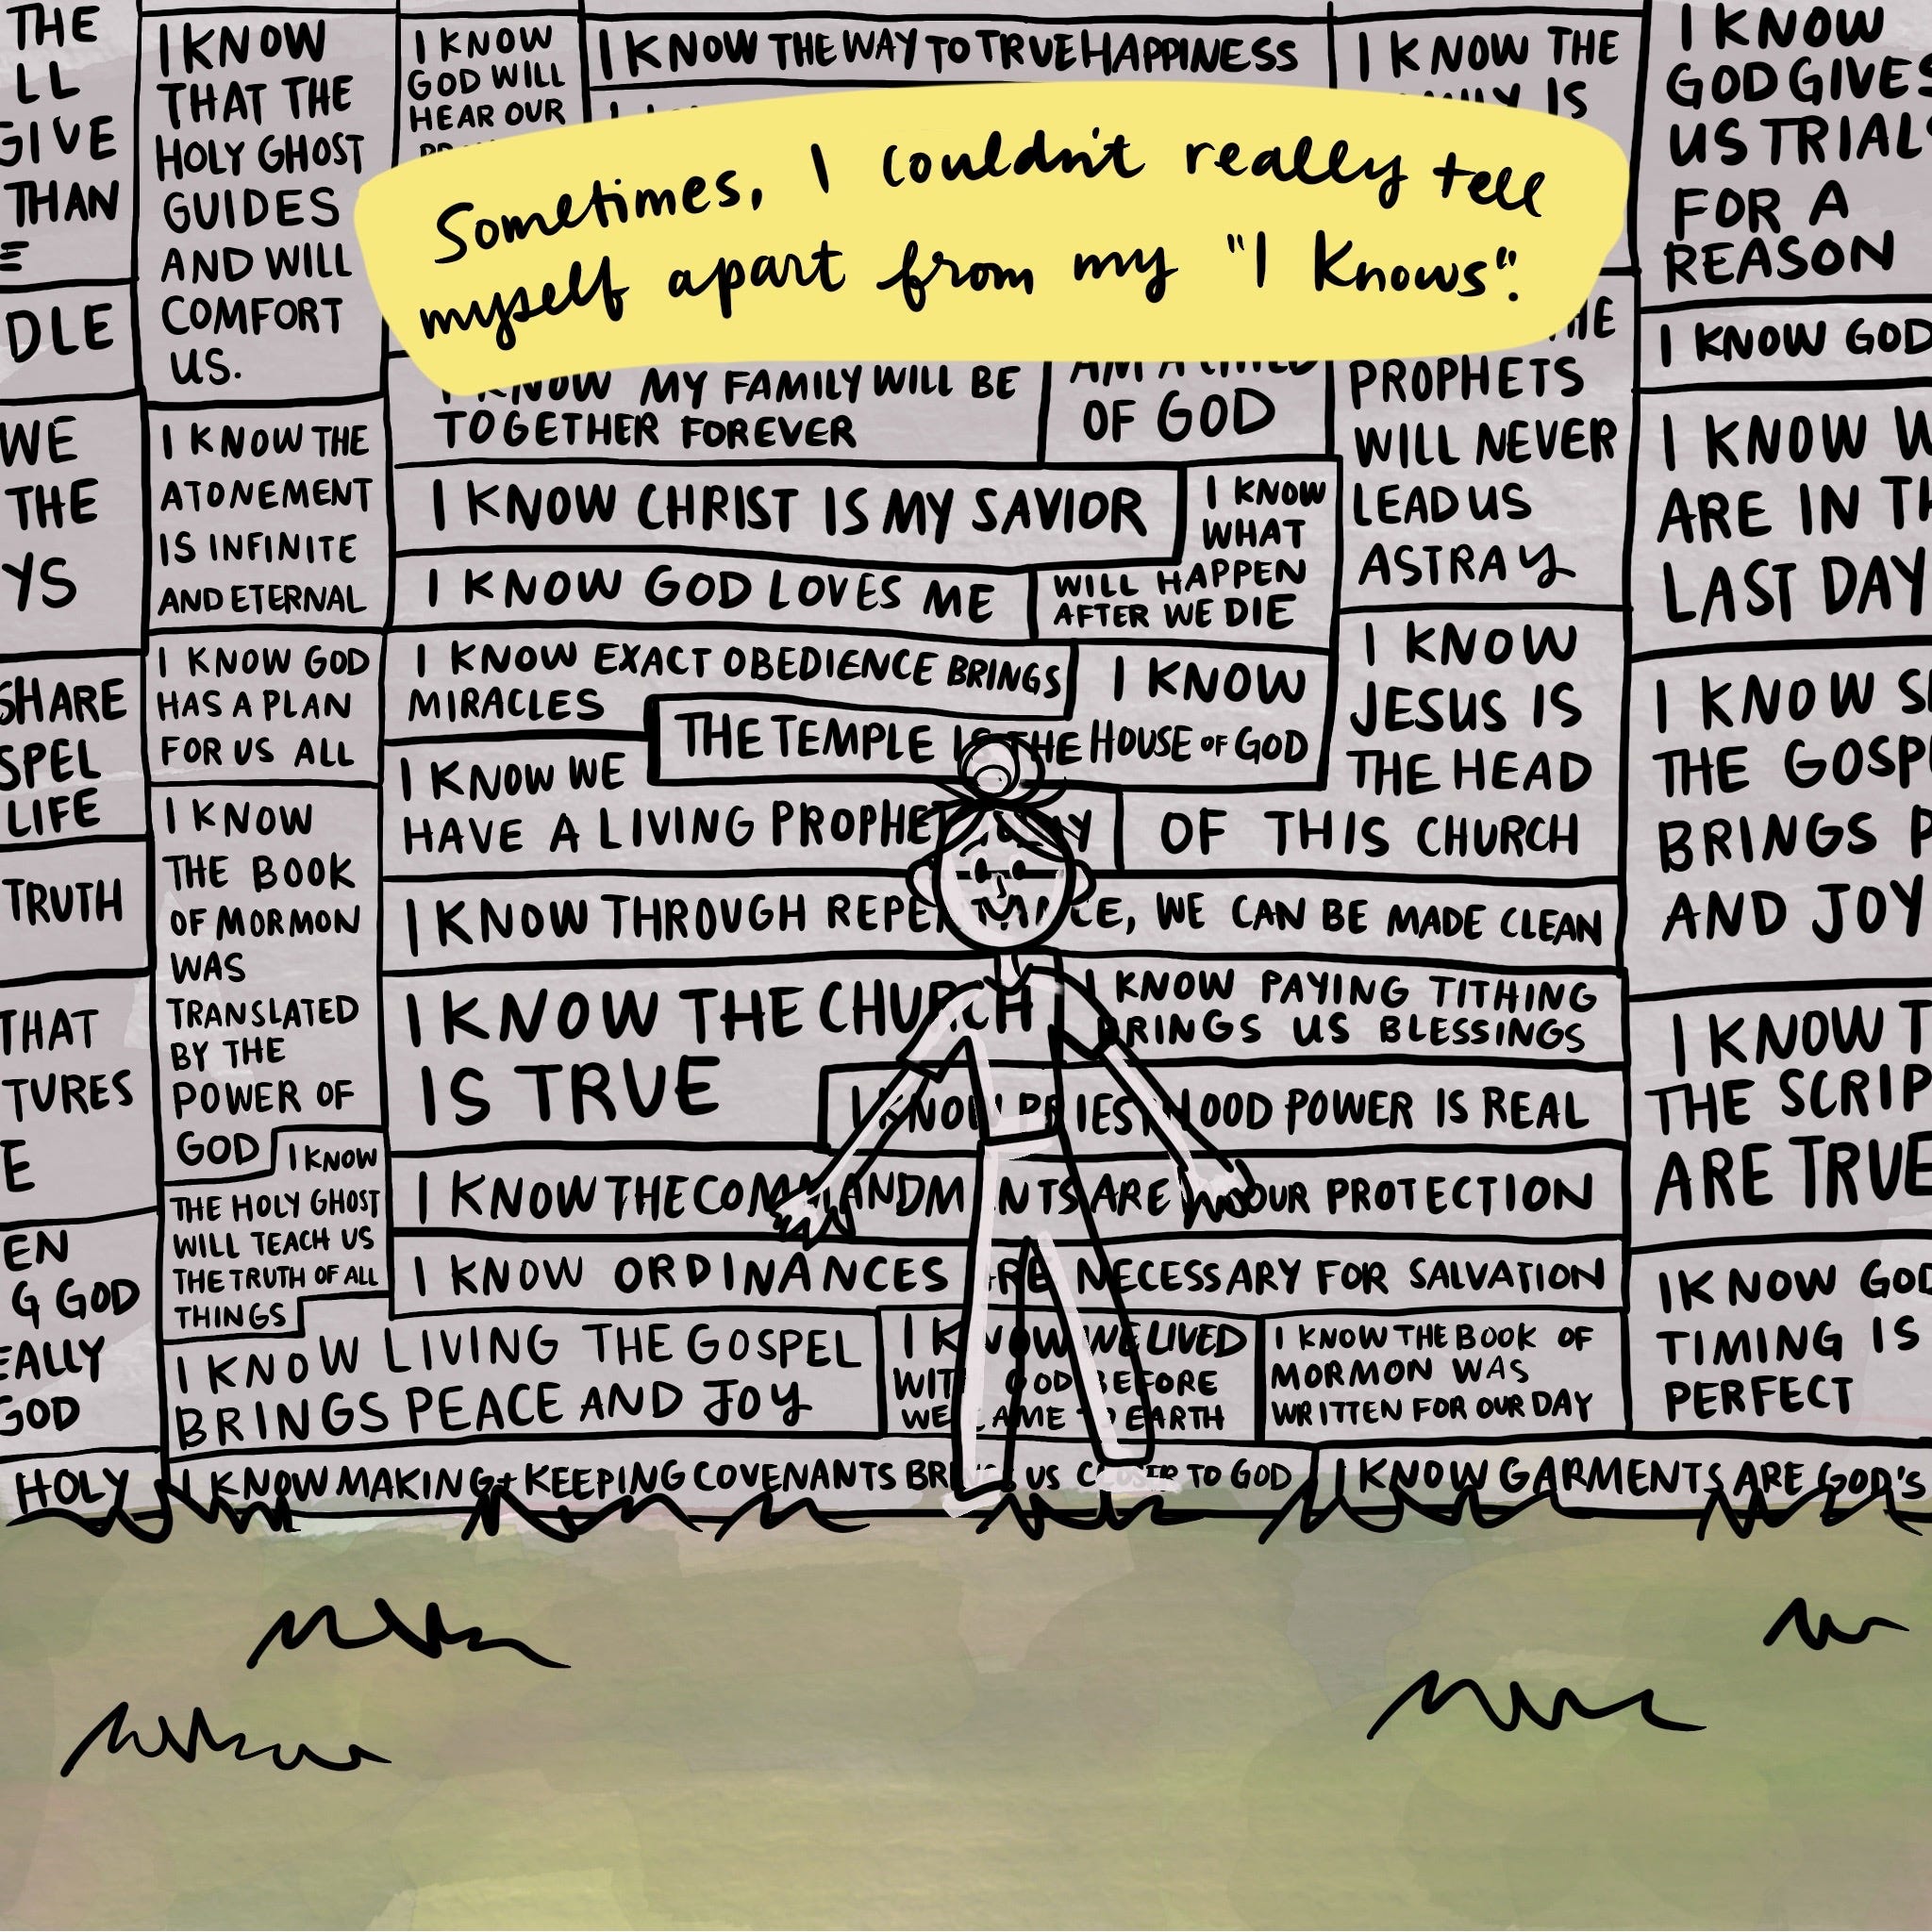 Sometimes, I couldn't really tell
myself apart from my "I Knows".
THE
LL
GIVE
THAN
DLE
WE
THE
YS
SHARE
SPEL
LIFE
TRUTH
THAT
TURES
E
EN
G GOD
EALLY
GOD
HOLY
I KNOW
THAT THE
HOLY GHOST
GUIDES
AND WILL
COMFORT
US.
I KNOW THE
ATONEMENT
IS INFINITE
AND ETERNAL
I KNOW GOD
HAS A PLAN
FOR US ALL
I KNOW
THE BOOK
OF MORMON
WAS
TRANSLATED
BY THE
POWER OF
GOD
I KNOW
THE HOLY GHOST
WILL TEACH US
THE TRUTH OF ALL
THINGS
I KNOW
GOD WILL
HEAR OUR
I KNOW THE WAY TO TRUE HAPPINESS
I KNOW THE
IS
I KNOW MY FAMILY WILL BE
TOGETHER FOREVER
AM A CHILD
OF GOD
THE
PROPHETS
WILL NEVER
LEAD US
ASTRAY
I KNOW CHRIST IS MY SAVIOR
I KNOW
WHAT
WILL HAPPEN
AFTER WE DIE
I KNOW GOD LOVES ME
I KNOW EXACT OBEDIENCE BRINGS
MIRACLES
I KNOW
THE TEMPLE IS THE HOUSE OF GOD
I KNOW
JESUS IS
THE HEAD
OF THIS CHURCH
I KNOW WE
HAVE A LIVING PROPHET TODAY
I KNOW THROUGH REPENTANCE, WE CAN BE MADE CLEAN
I KNOW THE CHURCH
IS TRUE
I KNOW PAYING TITHING
BRINGS US BLESSINGS
I KNOW PRIESTHOOD POWER IS REAL
I KNOW THE COMMANDMENTS ARE OUR PROTECTION
I KNOW ORDINANCES ARE NECESSARY FOR SALVATION
I KNOW LIVING THE GOSPEL
BRINGS PEACE AND JOY
I KNOW WE LIVED
WITH GOD BEFORE
WE CAME TO EARTH
I KNOW THE BOOK OF
MORMON WAS
WRITTEN FOR OUR DAY
I KNOW MAKING + KEEPING COVENANTS BRINGS US CLOSER TO GOD
I KNOW GARMENTS ARE GOD'S
I KNOW
GOD GIVES
US TRIALS
FOR A
REASON
I KNOW GOD
I KNOW W
ARE IN TH
LAST DAY
I KNOW S
THE GOSP
BRINGS P
AND JOY
I KNOW T
THE SCRIP
ARE TRUE
I KNOW GOD
TIMING IS
PERFECT